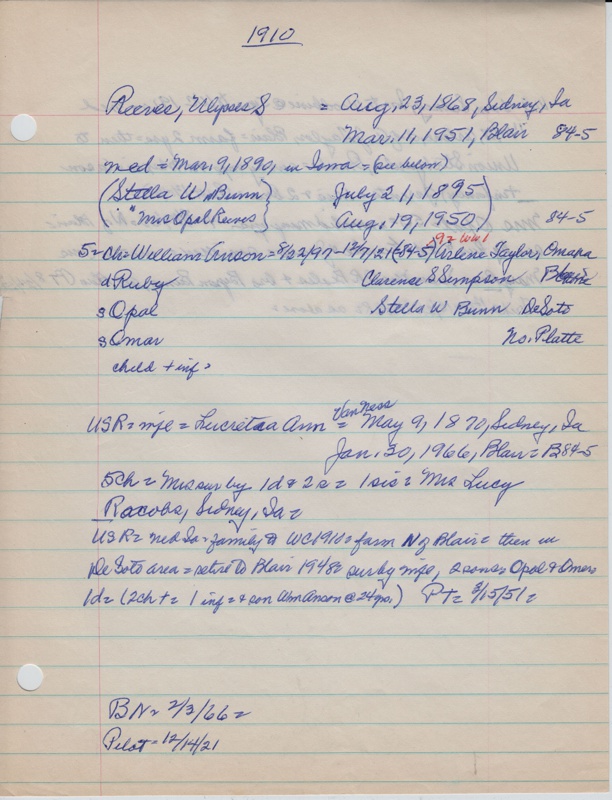 1910
Reeves, Ulysses S = Aug. 23, 1868, Sidney, Ia
Mar. 11, 1951, Blair 84-5
med = Mar. 9, 1890, in Iowa = (see below)
(Stella W. Bunn} July 21, 1895)
( "Mrs Opal Reeves} Aug. 19, 1950) 84-5
92 WW1
5 = Ch = William Anson = 8/22/97 - 12/7/21 (84-5) Arlene Taylor, Omaha
d Ruby Clarence S Simpson
s Opal Stella W Bunn DeSoto
s Omar No. Platte
child + inf =
VanNess
USR = wife = Lucretia Ann = May 9, 1870, Sidney, Ia
Jan. 30, 1966, Blair = B 84-5
5 ch = Mrs sur by 1 d + 2 s = 1 sis = Mrs Lucy
Racobs, Sidney, Ia =
USR = med Ia = family to WC 1911 = farm N of Blair = then in
DeSoto area = retire to Blair 1948 = sur by wife, 2 sons = Opal & Omar
1d = (2ch + = 1 inf = + son Wm Anson @ 24 yrs.) PT = 3/15/51 =
BN = 2/3/66 =
Pilot = 12/14/21